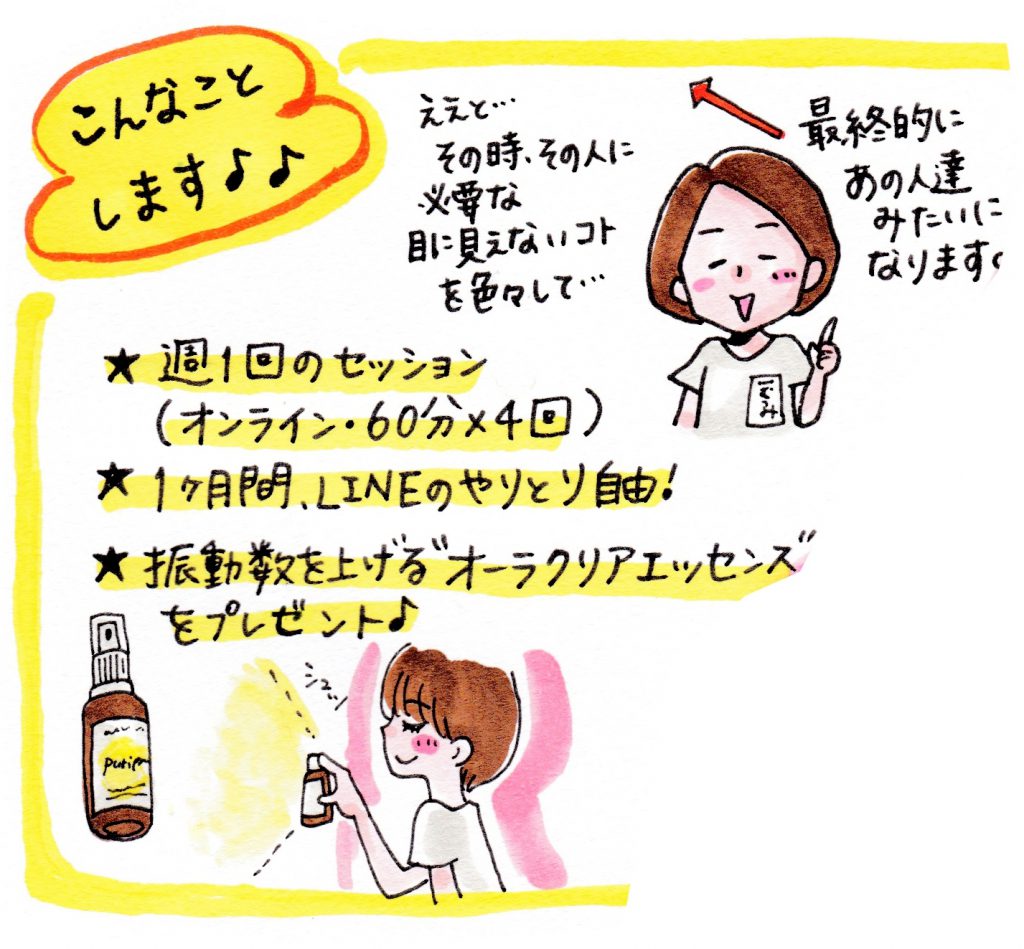 こんなこと
します♪♪
ええと…
その時、その人に
必要な
目に見えないコト
を色々して…
最終的に
あの人達
みたいに
なります
★ 週1回のセッション
(オンライン・60分×4回)
★ 1ヶ月間、LINEのやりとり自由!
★ 振動数を上げる"オーラクリアエッセンス"
をプレゼント♪
シュッ